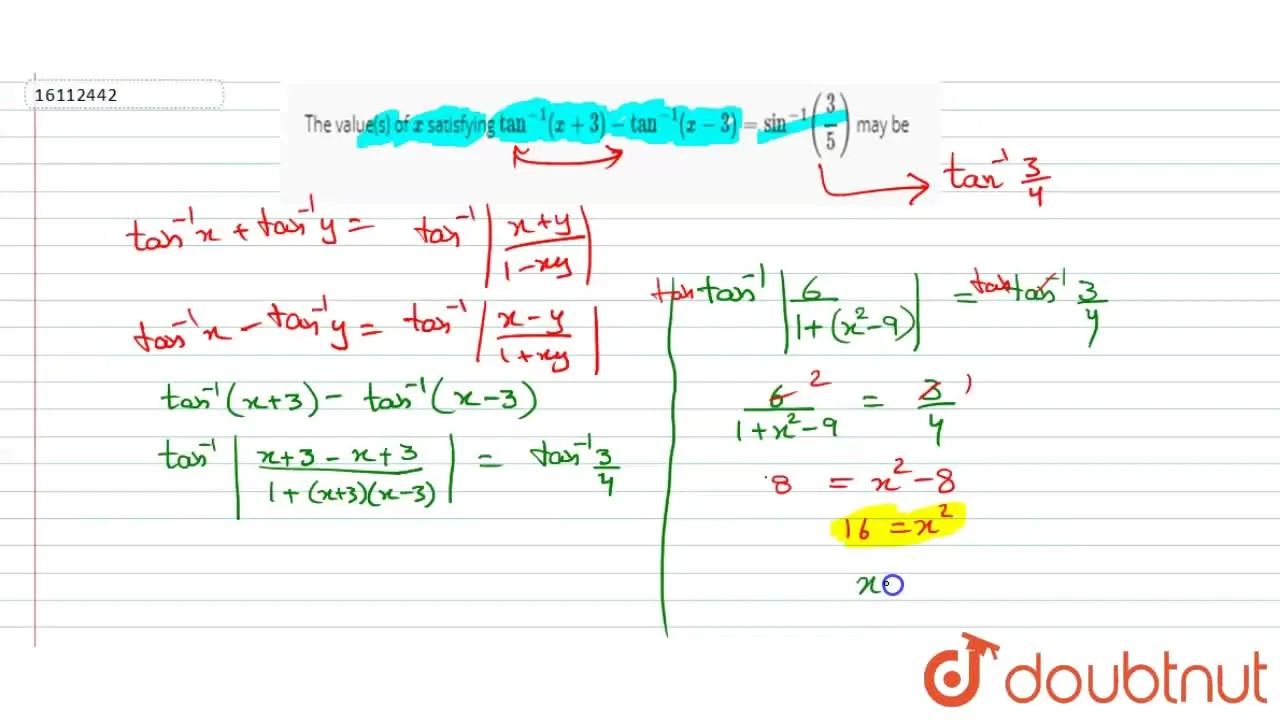 16112442
The value(s) of x satisfying tan⁻¹(x + 3) − tan⁻¹(x − 3) = sin⁻¹(3/5) may be
tan⁻¹ 3/4
tan⁻¹x + tan⁻¹y = tan⁻¹ |(x+y)/(1-xy)|
tan⁻¹x - tan⁻¹y = tan⁻¹ |(x-y)/(1+xy)|
tan⁻¹(x+3) - tan⁻¹(x-3)
tan⁻¹ |(x+3-x+3)/(1+(x+3)(x-3))| = tan⁻¹ 3/4
tan tan⁻¹ |6/(1+(x²-9))| = tan tan⁻¹ 3/4
6 2/(1+x²-9) = 3 1/4
8 = x²-8
16 = x²
x
doubtnut